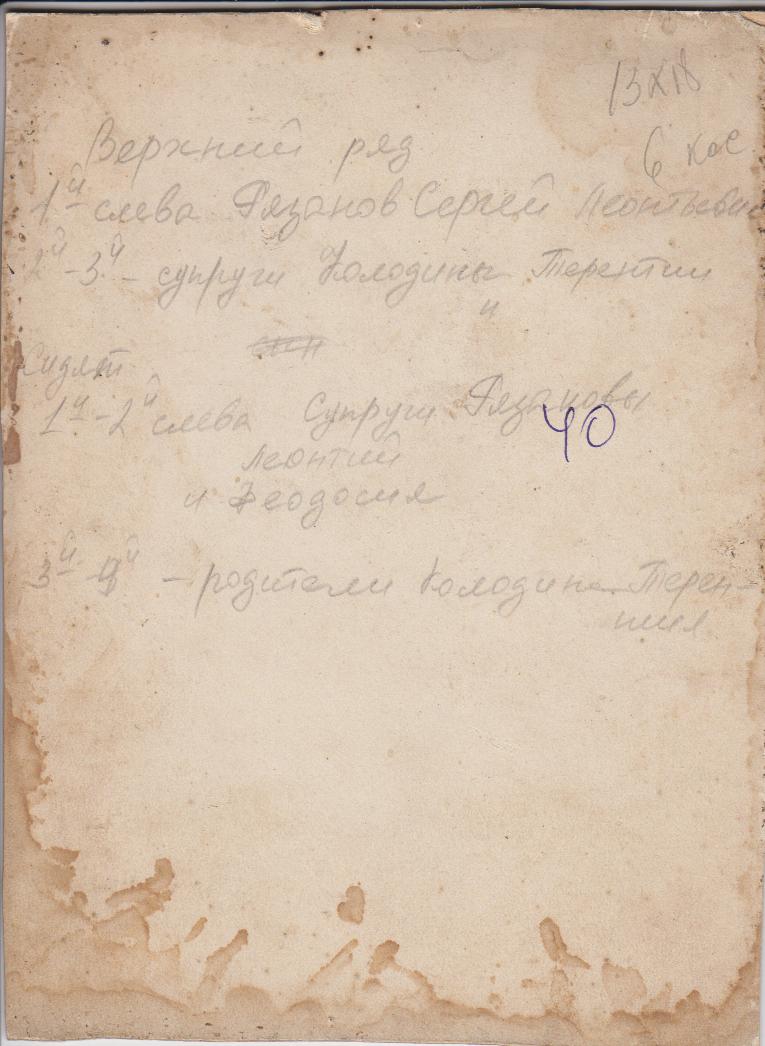 13х18
Верхний ряд
6 кас
1й слева Рязанов Сергей Леонтьевич
2й-3й - супруги Колодины Терентий
и
Сидят
1й-2й слева Супруги Рязановы
40
Леонтий
и Феодосия
3й-4й - родители Колодина Терен-
тия